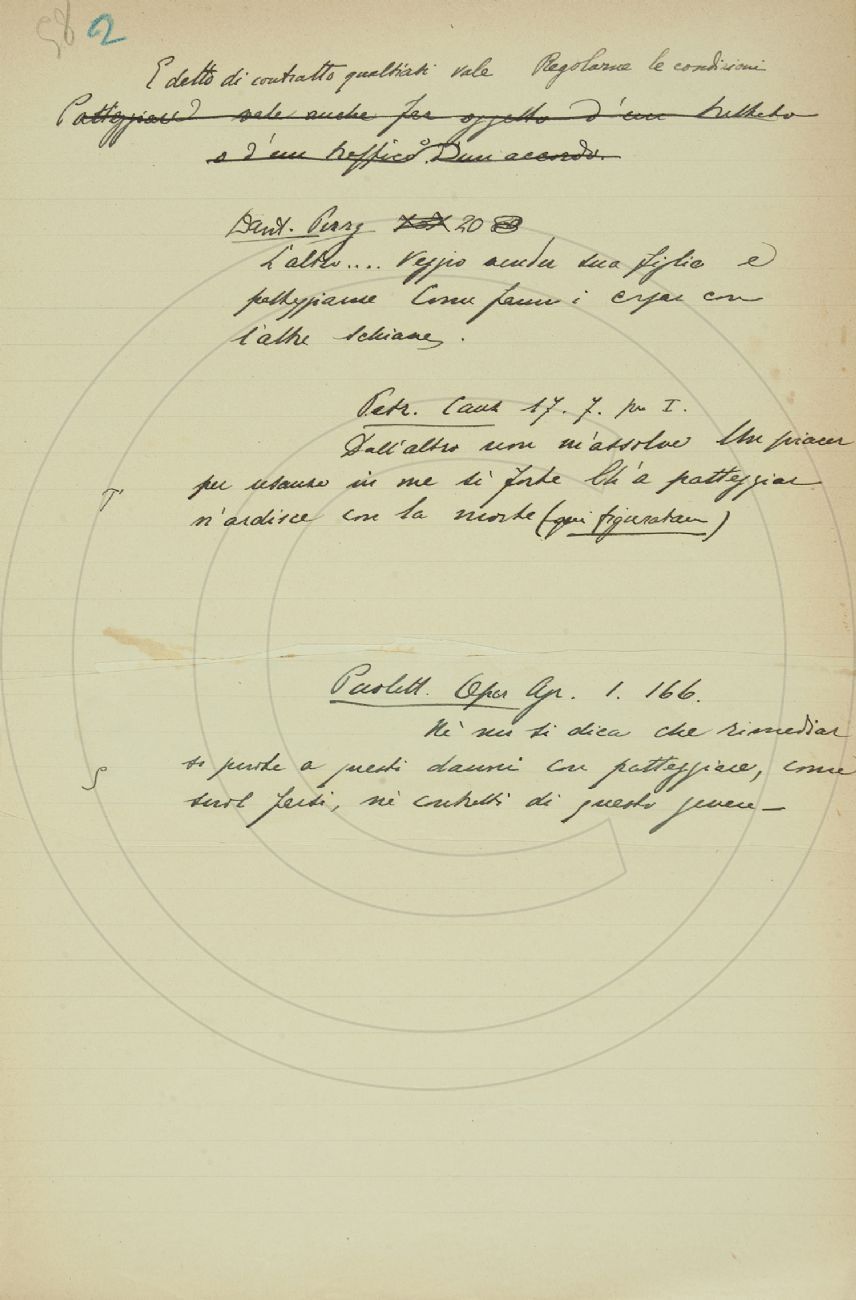 58 2
E detto di contratto qualsiasi vale Regolarne le condizioni
Patteggiare vale anche far oggetto d'un trattato
o d'un traffico. D'un accordo.
Dant. Purg. 20
L'altro.... Veggio vender sua figlia e
patteggiarne Come fanno i corsar con
l'altre schiave.
Petr. Canz 17. 7. I.
Dall'altro non m'assolve Un piacer
per usanza in me sì forte Ch'a patteggiar
T n'ardisce con la morte (qui figuratam)
Paolett. Oper Agr. 1. 166.
Nè mi si dica che rimediar
S si puote a questi danni con patteggiare, come
suol farsi, nè contratti di questo genere —